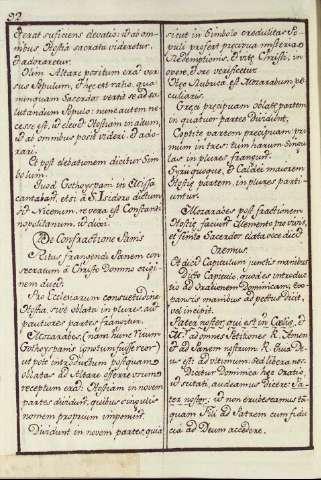 92
fuerat suficiens elevatio: ut ab om-
nibus Hostia sacrata videretur,
et adoraretur.
Olim Altare positum erat ver-
sus Populum, et hęc est ratio, qua
nunquam Sacerdos vertit se ad sa-
lutandum Populo: nunc autem ne-
cesse est, ut elevet Hostiam in altum,
ut ab omnibus posit videri, et ado-
rari.
Et post elevationem dicitur Sim-
bolum.
Quod Gothi Hyspani in Missa
cantabant, etsi à S. Isidoro dictum
sit Nicenum, re vera est Constanti-
nopolitanum, ut dixi.
De Confractione Panis
Ritus frangendi Panem con-
secratum à Christo Domno origi-
nem ducit.
Pro Ecclesiarum consuetudine
Hostia sive oblata in plures, aut
pauciores partes frangitur.
Mozarabes, (nam hunc ritum
Gothi Hyspani ignotum fuisse reor)
ut pote introductum postquam
oblatas ad Altare offerri usum
receptum erat: Hostiam in novem
partes dividunt, quibus singulis
nomen proprium imponitur.
Dividunt in novem partes, quia
sicut in Simbolo credulitas Po-
puli profert precipua misteria
Redemptionis, et Vitę Christi, in
novem, fore verificetur.
Hęc Rubrica est Mozarabum pe-
culiaris.
Gręci precipuam oblatę partem
in quatuor partes Dividunt;
Coptitę partem precipuam pri-
mum in tres; tum harum singu-
las in plures frangunt.
Syri quoque, et Caldei maiorem
Hostię partem, in plures parti-
untur.
Mozarabes post fractionem
Hostię faciunt Memento pro vivis,
et facto Sacerdos elata voce dicit
OREMUS.
Et dicit Capitulum junctis manibus
Dicto Capitulo, quod est introduc-
tio ad Orationem Dominicam, ex-
pansis manibus ad pectus dicit,
vel incipit.
Pater noster, qui es in Cœlis, et
Ait: ad omnes Petitiones R. Amen
et ad Panem nostrum R. Quia De-
us est: ad ultimum: Sed libera nos.
Dicitur Dominica hęc Oratio,
ut securi, audeamus Dicere: Pa-
ter noster: ut non erubescamus tã-
quam Filii ad Patrem cum fidu-
cia ad Deum accedere.